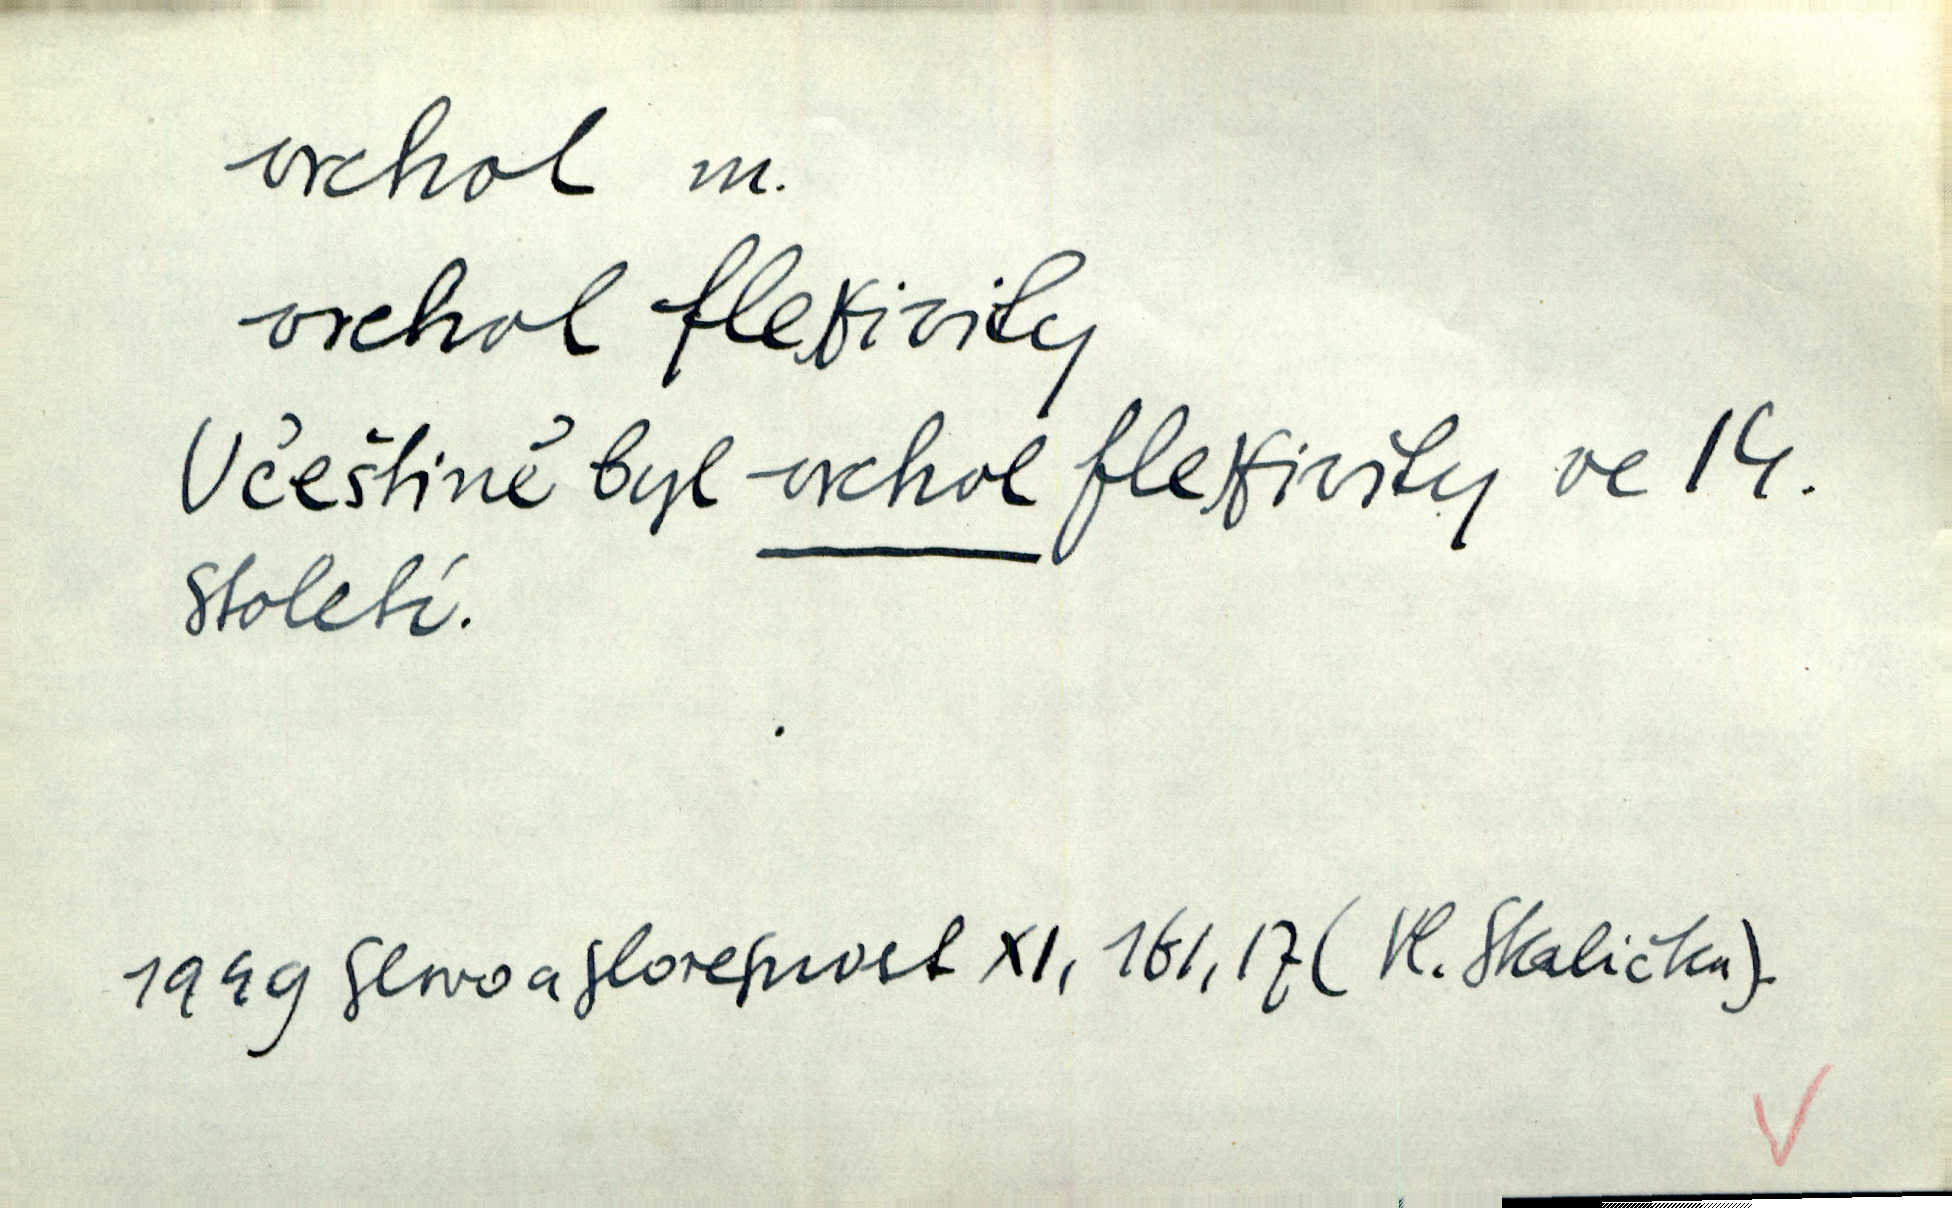 vrchol m.
vrchol flexivity
V češtině byl vrchol flexivity ve 14.
století.
1949 Slovo a slovesnost XI, 161, 17 (Vl. Skalička).